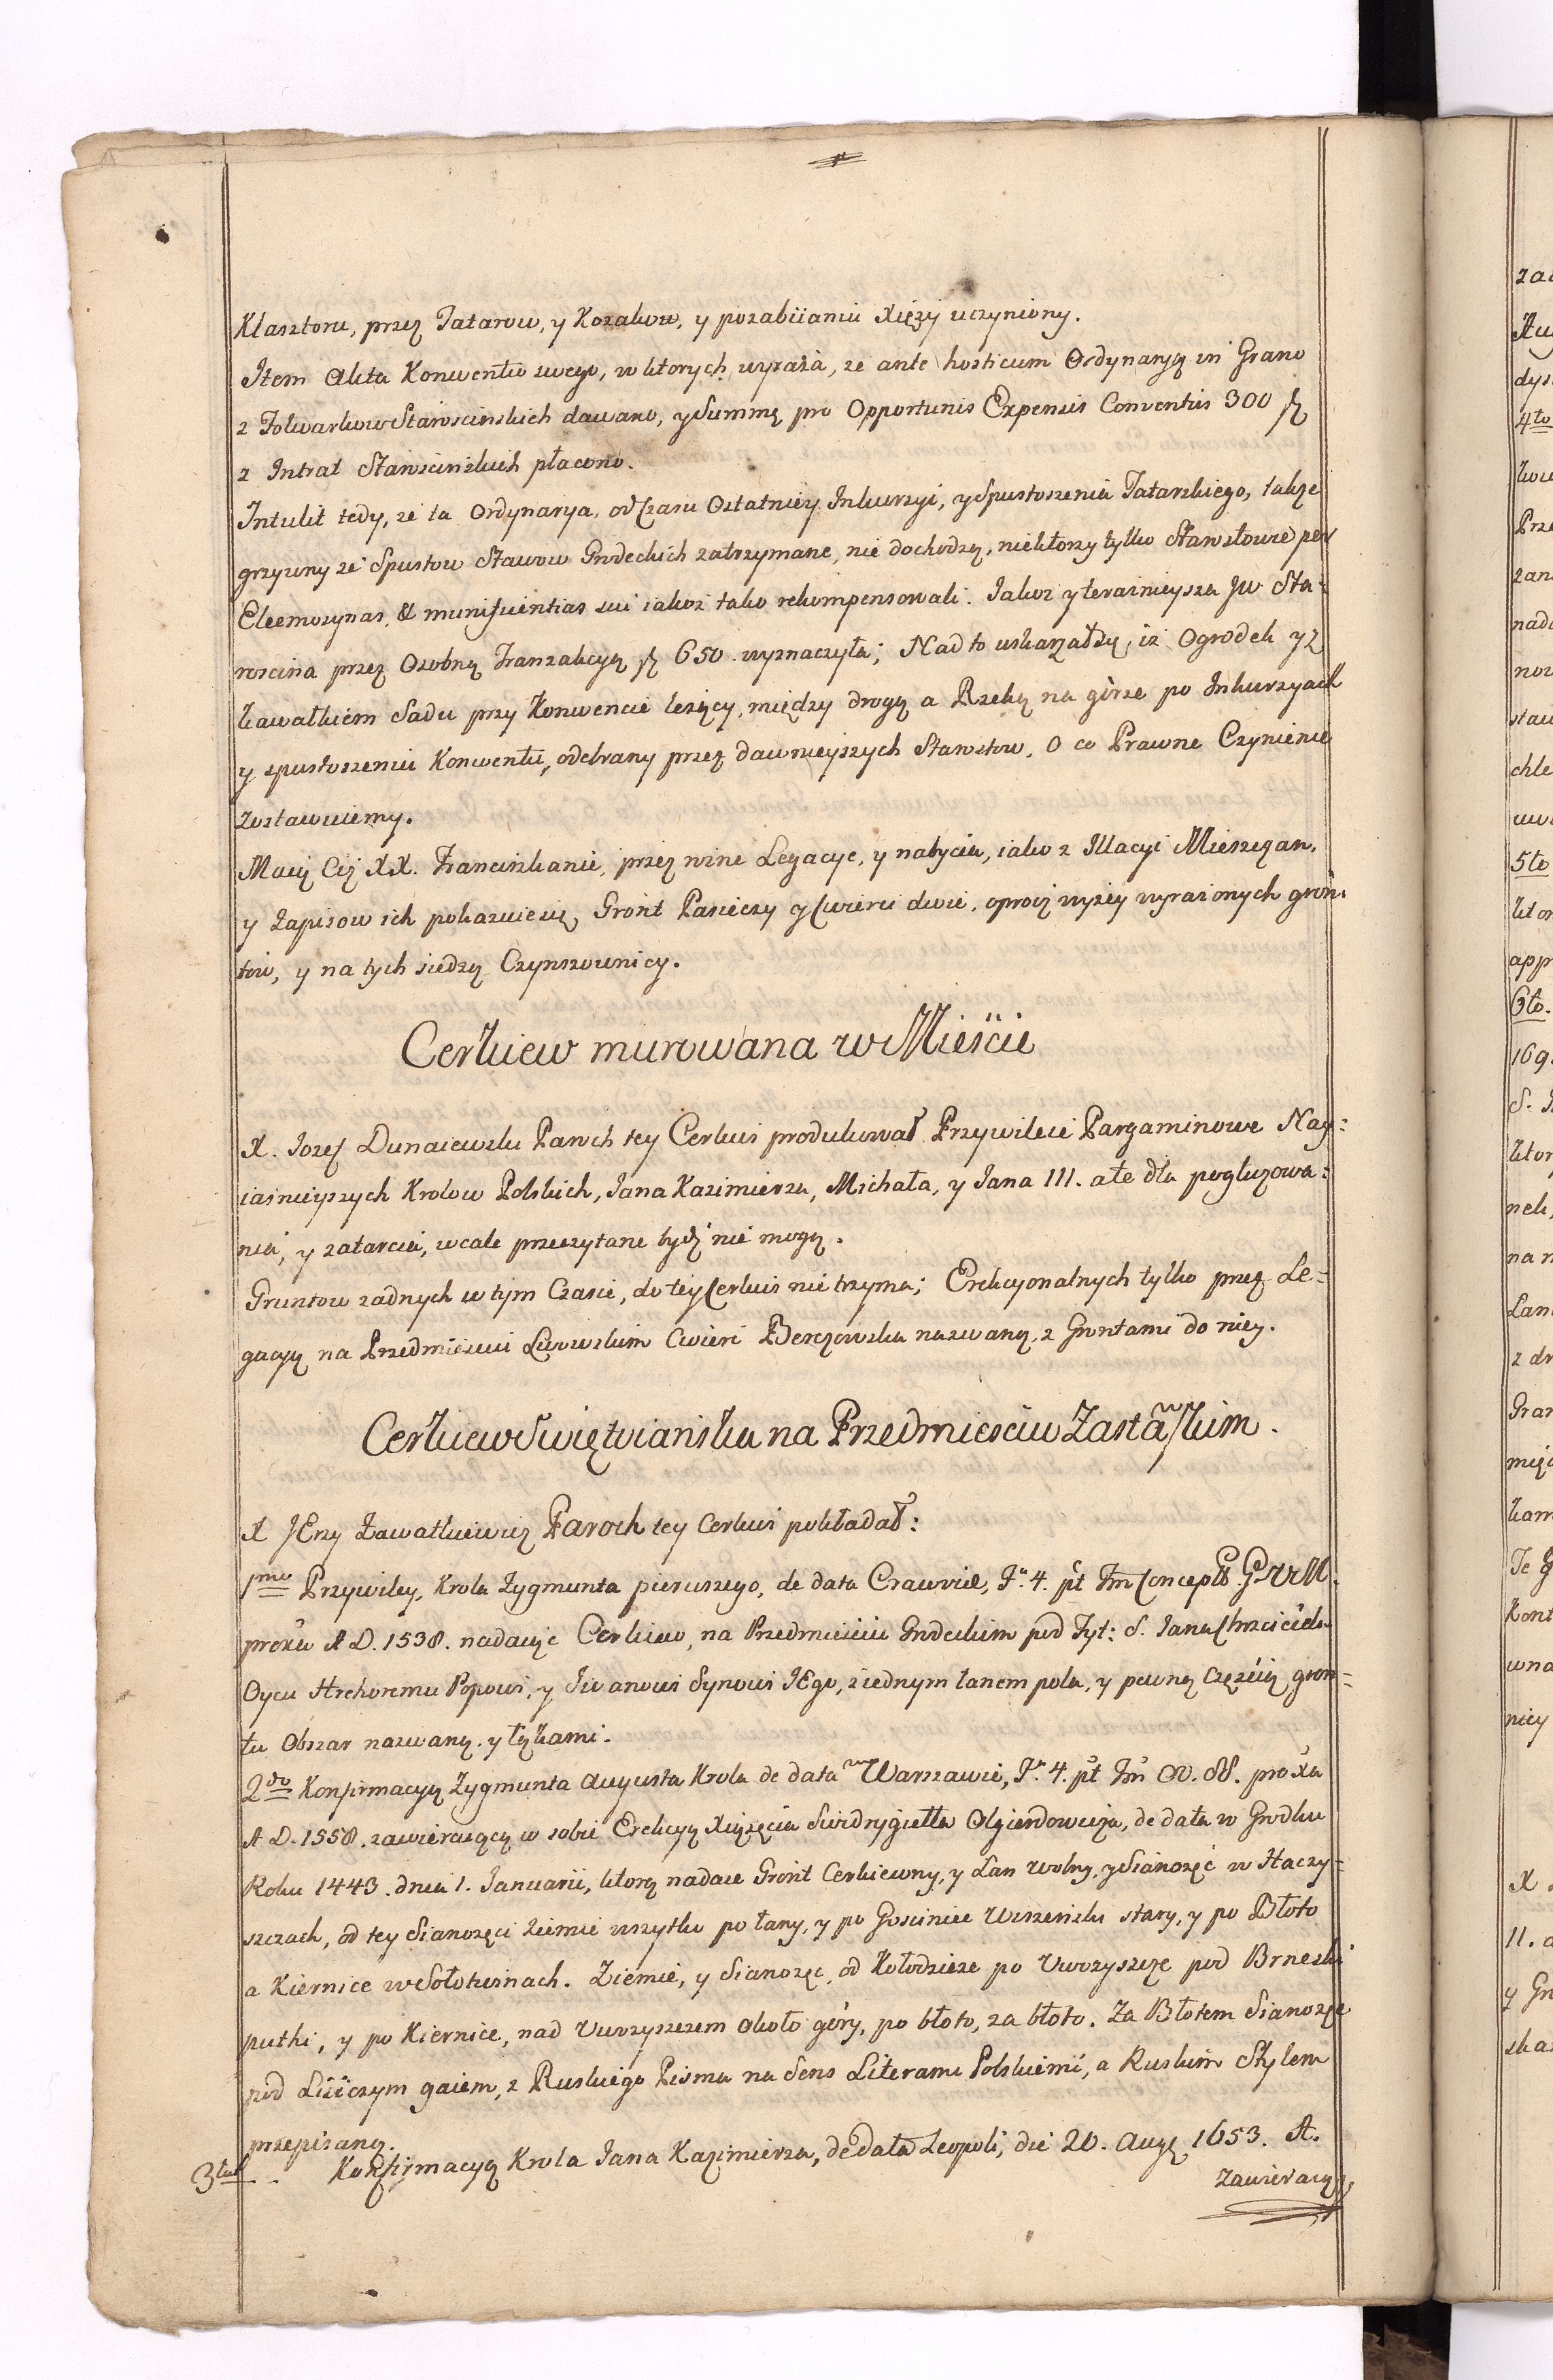 Klasztoru, przez Tatarow, y Kozakow, y pozabiianiu Xięży uczyniony.
Item Akta Konwentu swego, w ktorych wyraża, ze ante hosticum Ordynaryą in Grano
z Folwarkow Starościnskich dawano, y Summę pro Opportunis Expensis Conventus 300 fl
z Intrat Starościnskich płacono.
Intulit tedy, ze ta Ordynarya, od Czasu Ostatniey Inkursyi, y Spustoszenia Tatarskiego, także
grzywny ze Spustow Stawow Grodeckich zatrzymane, nie dochodzą, niektorzy tylko Starostowie per
Eleemosynas, & munificentias sui iakoż tako rekompensowali. Jakoż y teraznieysza JW Sta-
roscina przez Osobną Tranzakcyą fl 650. wyznaczyła; Nad to uskarzał się, iż Ogrodek y z
kawałkiem Sadu przy Konwencie leżący, między drogą a Rzeką na górze po Inkursyach
y spustoszeniu Konwentu, odebrany przez dawnieyszych Starostow, o co Prawne Czynienie
zostawuiemy.
Maią Ciż XX. Franciszkanie, przez rożne Legacye, y nabycia, iako z Illacyi Mieszczan,
y Zapisow ich pokazuie się, Gront Pasieczny y Cwierci dwie, oprocz wyżey wyrażonych gron-
tow, y na tych siedzą Czynszownicy.
Cerkiew murowana w Mieście
X. Jozef Dunaiewski Paroch tey Cerkwi produkował Przywileie Pargaminowe Nay:
iaśnieyszych Krolow Polskich, Jana Kazimierza, Michała, y Jana III. ale dla pogluzowa:
nia, y zatarcia, wcale przeczytane bydź nie mogą.
Gruntow zadnych w tym Czasie, do tey Cerkwi nie trzyma; Erekcyonalnych tylko przez Le-
gacyą na Przedmieściu Lwowskim Cwierć Berezowska nazwaną, z Grontami do niey.
Cerkiew Swiętoianska na Przedmiesciu Zastawskim.
X JErzy Zawałkiewicz Paroch tey Cerkwi pokładał:
1mo Przywiley, Krola Zygmunta pierwszego, de data Cracoviæ, Fr. 4. pt Fm Concept. G. V M.
proxu A D. 1538. nadaiąc Cerkiew, na Przedmieściu Grodeckim pod Tyt: S. Jana Chrzciciela
Oycu Hrehoremu Popowi, y Jwanowi Synowi JEgo, z iednym łanem pola, y pewną Częścią gron-
tu Obszar nazwaną y łąkami.
2do Konfirmacyą Zygmunta Augusta Krola de data w Warszawie, Fr. 4. pt Fm OO. SS. proxa
A D. 1558. zawieraiącą w sobie Erekcyą Xiążęcia Swidrygiełła Olgierdowicza, de data w Grodku
Roku 1443. dnia 1. Januarii, ktorą nadaie Gront Cerkiewny, y Łan wolny, y Sianożęć w Haczy-
szczach, od tey Sianożęci ziemie wszytko po łany, y po Gosciniec Wiszeński stary, y po Błoto
a Kiernice w Sołotwinach. Ziemie, y Sianożęć, od Kołodzieże po Uworzyszcze pod Brneski
putki, y po Kiernice, nad Uworzyszczem około góry, po błoto, za błoto. Za Błotem Sianożęć
pod Liiczym gaiem, z Ruskiego Pisma na Sens Literami Polskiemi, a Ruskim Stylem
przepisaną.
3tio Konfirmacyą Krola Jana Kazimierza, de Data Leopoli, die 20. Aug 1653. A.
zawieraią,